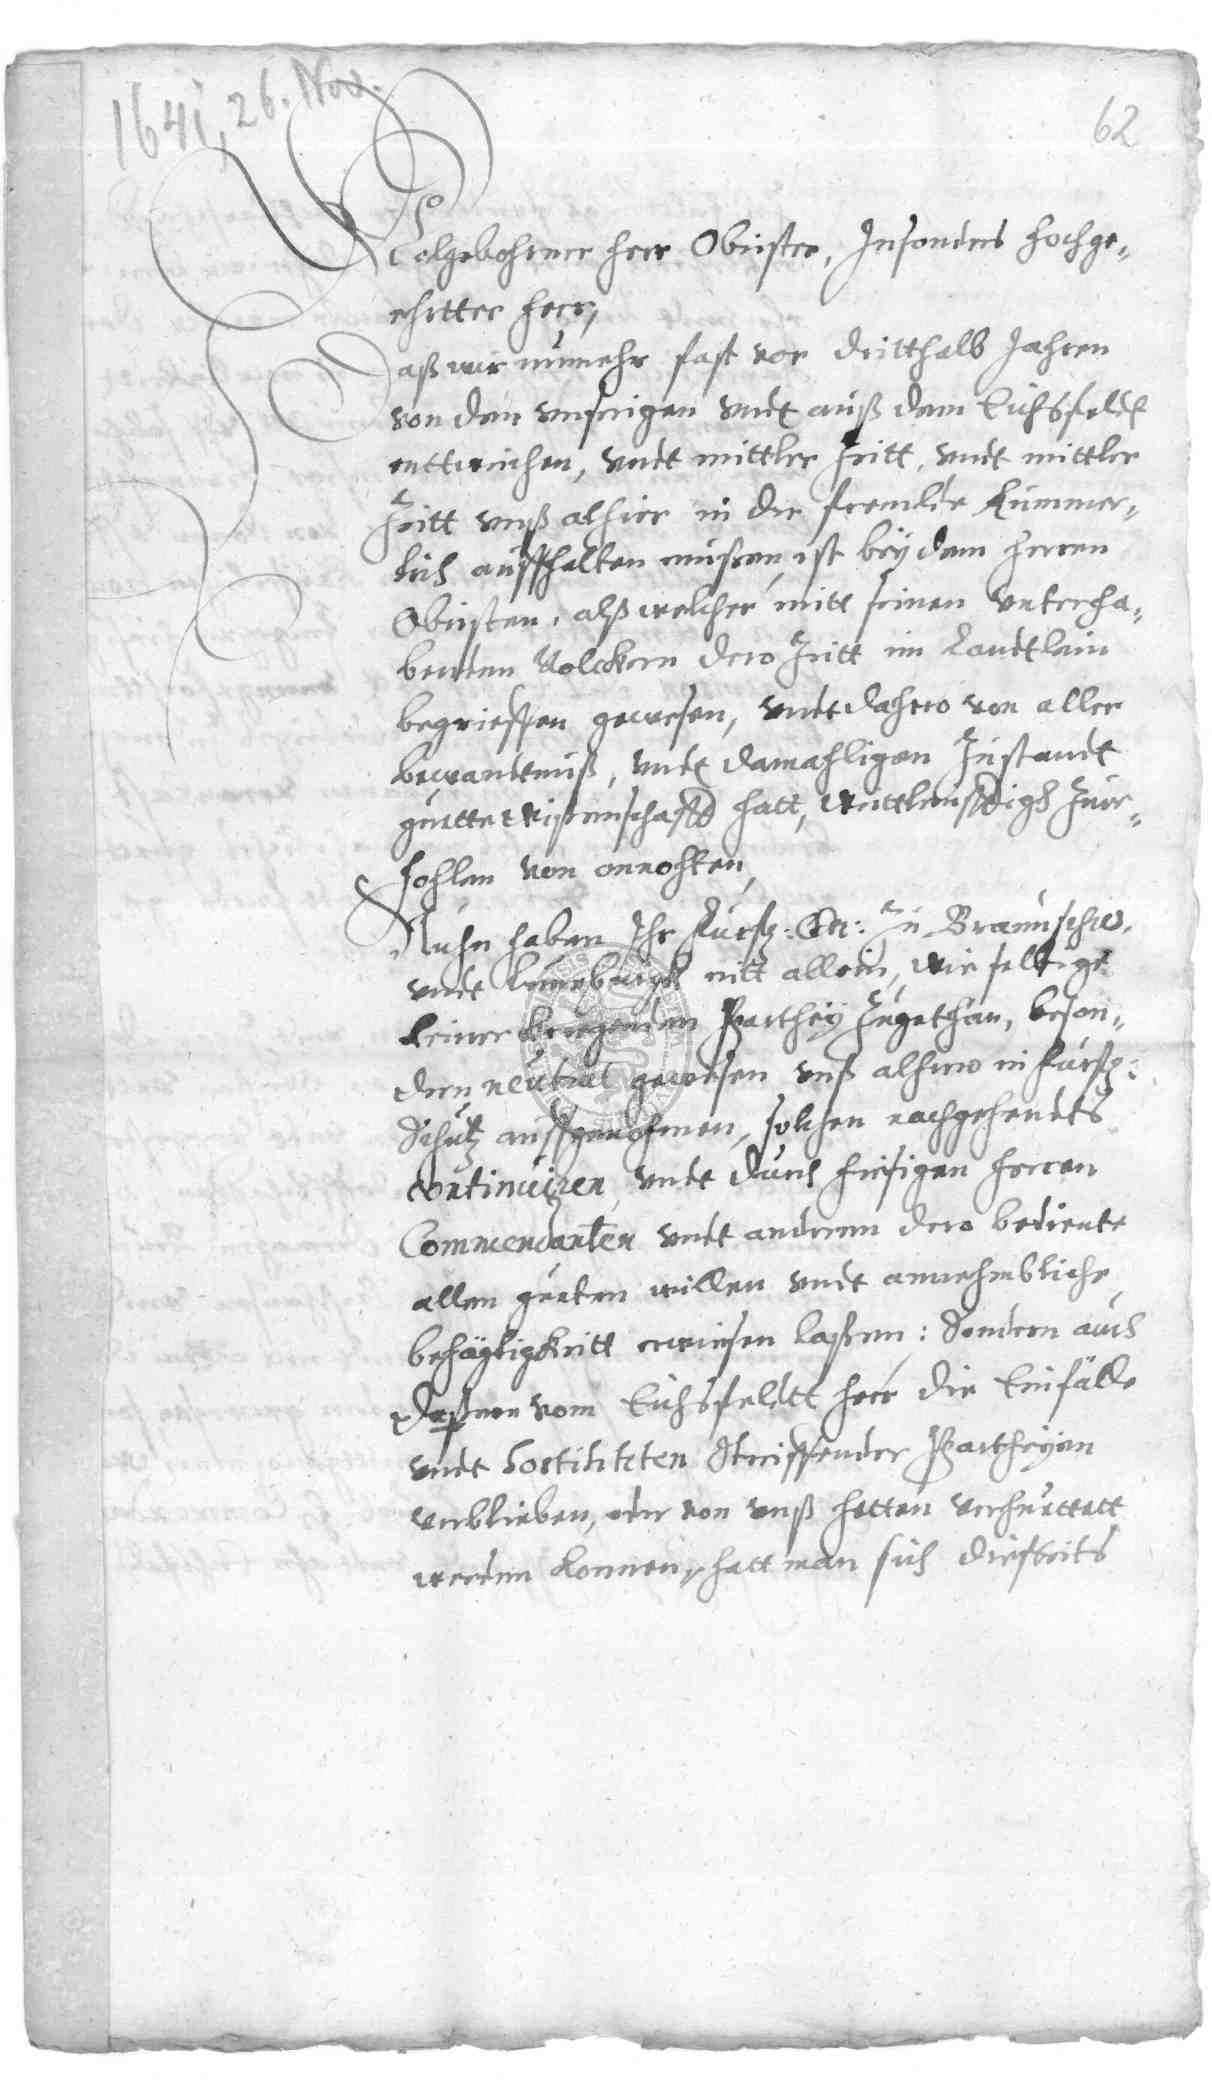 1641, 26. Nov.
62
Wolgebohrner Herr Obrister, Insonders hochge-
ehrtter Herr,
Daß wir nunmehr fast vor dritthalb Jahren
von den unserigen undt auß dem Eichsfeldt
entweichen, undt mittler Zeitt, undt mittler
Zeitt unß alhier in der frembde kummer-
lich auffhalten mußen, ist bey dem Herren
Obristen, alß welcher mitt seinen unterha-
benden Volckern dero Zeitt im Landtlein
begrieffen gewesen, undt dahero von aller
bewandtnuß, undt damahligen Zustandt
guette wißenschafft hatt, weittleufftigh zuer-
hohlen von onnohten,
Nuhn haben Ihr Fürstl: Gn: Zu Braunschw.
undt Luneburgk nitt allein, wie selbige
keiner kriegenden Parthey zugethan, beson-
dern neutral gewesen unß alhiero in Fürstl:
Schutz auffgenohmen, solchen nachgehendts
continuiren, undt durch hiesigen Herren
Commendanten undt anderen dero bediente
allen guten willen undt annehmbliche
behäglighkeitt erweisen laßen: Sondern auch
daferne vom Eichsfeldtt herr die Einfälle
undt hostiliteten streiffender Partheyen
verblieben, oder von unß hetten verhuettett
werden konnen, hatt man sich dießeits